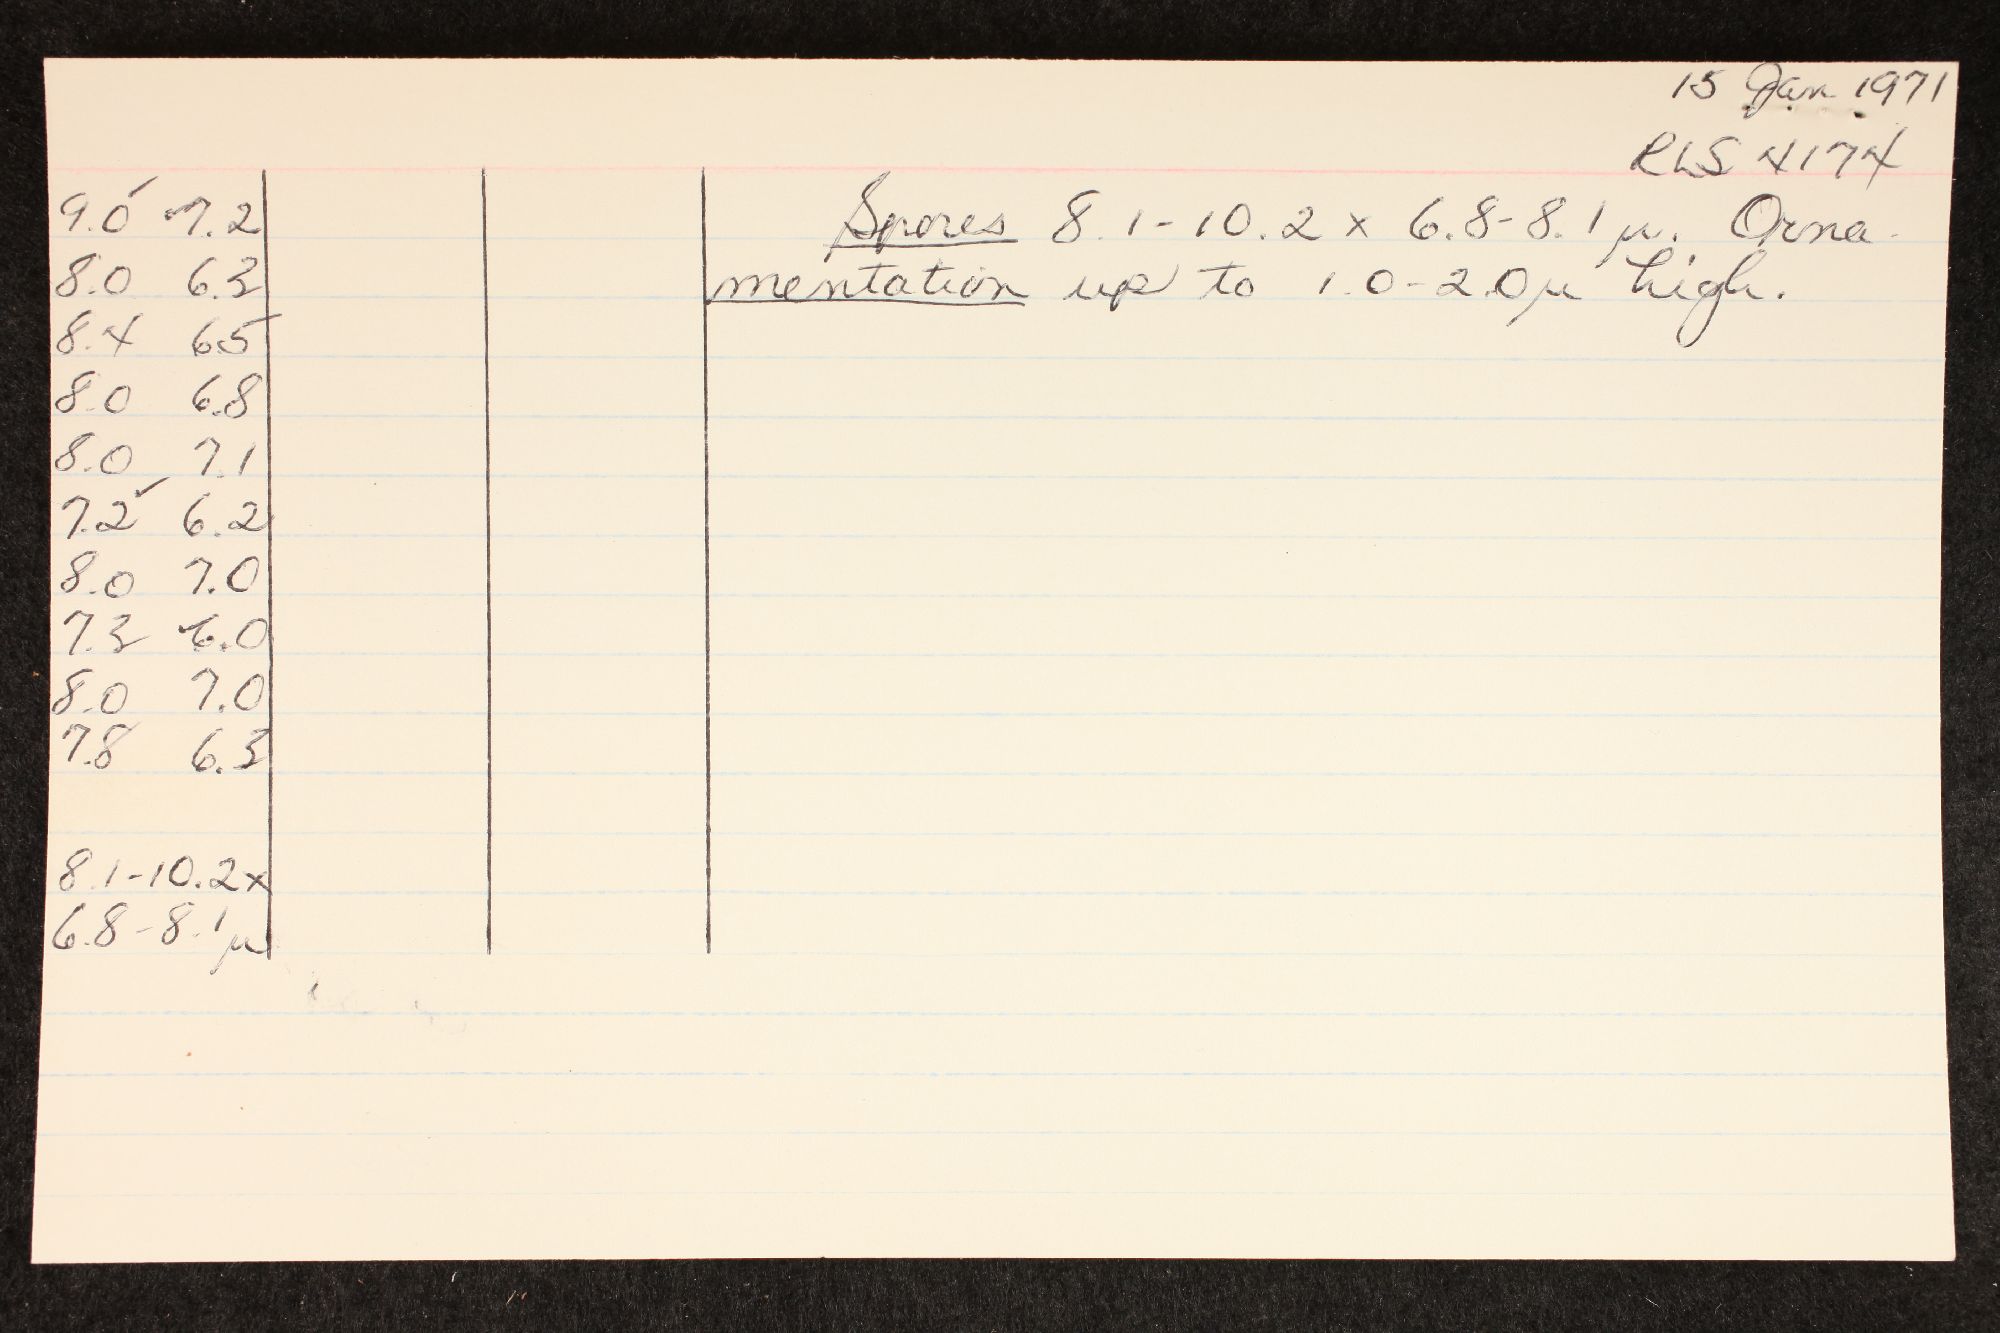 15 Jan 1971
RLS 4174
9.0 7.2
8.0 6.3
8.4 6.5
8.0 6.8
8.0 7.1
7.2 6.2
8.0 7.0
7.3 6.0
8.0 7.0
7.8 6.3
8.1-10.2x
6.8-8.1µ
Spores 8.1-10.2 x 6.8-8.1µ. Orna-
mentation up to 1.0-2.0µ high.